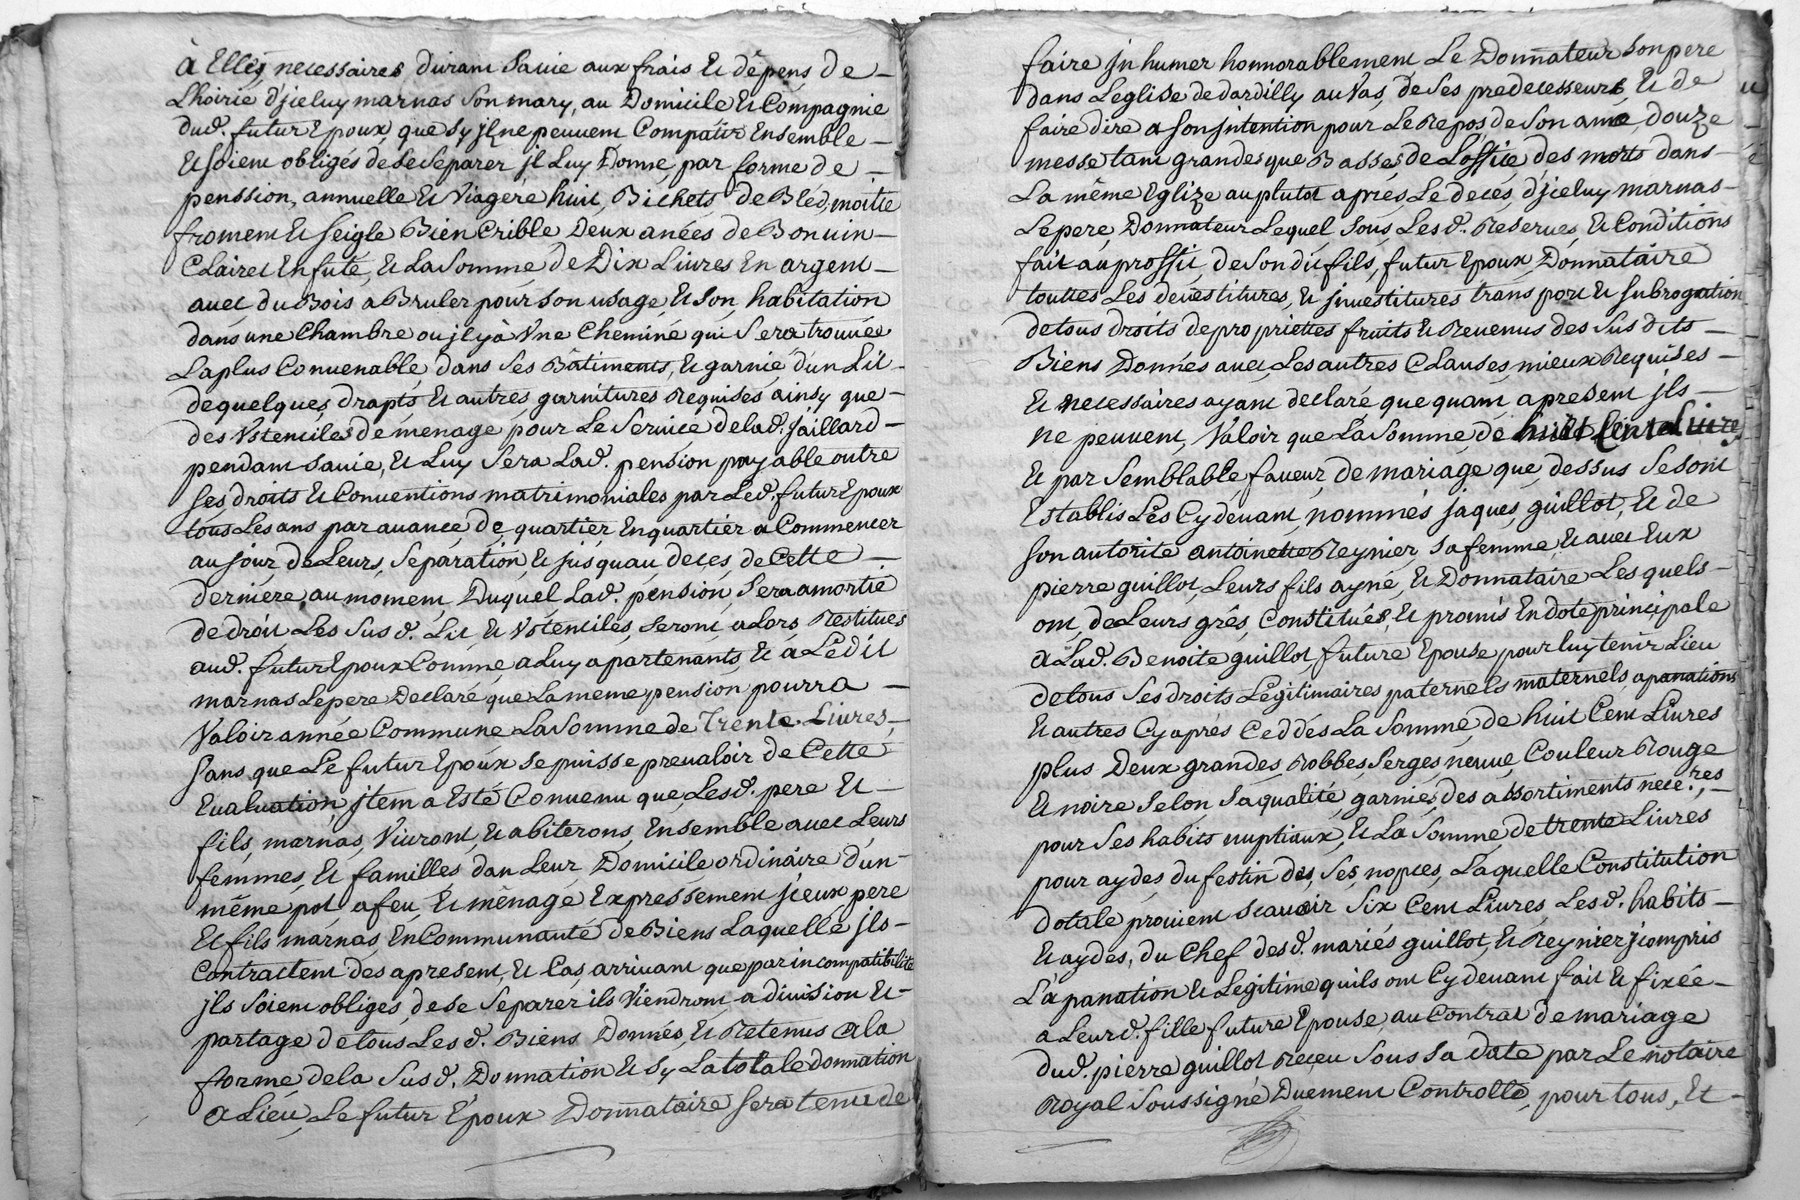 à Elles necessaires durant Savie aux frais Et dépens de
Lhoirie d'jceluy marnas Son mary, au Domicile Et Compagnie
dud. futur Epoux, que Sy jls ne peuvent Compatir Ensemble
Et Soient obligés de Se Separer jl Luy Donne par forme de
penssion, annuelle Et Viagere huit Bichets de Bled, moitie
froment Et Seigle Bien Crible, Deux anées de Bon vin
Clairet En futé, Et La Somme de Dix Livres En argent
avec du Bois a Bruler pour Son usage, Et Son habitation
dans une Chambre ou jl y à Vne Cheminé qui Sera trouvée
La plus Convenable dans Ses Bâtiments, Et garnie d'un Lit
de quelques drapts Et autres garnitures Requises ainsy que
des Vstenciles de menage pour Le Service de lad. jaillard
pendant Savie, Et Luy Sera Lad. pension payable outre
Ses droits Et Conventions matrimoniales par Led. futur Epoux
tous Les ans par avance de quartier En quartier a Commencer
au jour de Leurs Separation Et jusquau deces de Cette
derniere, au moment Duquel Lad. pension Sera amortie
de droit Les Sus d. Lit Et Vstenciles Seront alors Restitués
aud. futur Epoux Comme a Luy apartenants, Et a Ledit
marnas Le pere Declaré que La meme pension pourra
Valoir année Commune La Somme de Trente Livres,
Sans que Le futur Epoux Se puisse prevaloir de Cette
Evaluation, jtem a Esté Convenu que Lesd. pere Et
fils marnas, Vivront, Et abiterons Ensemble avec Leurs
femmes, Et familles dan Leur Domicile ordinaire d'un
même pot, a feu, Et ménage Expressement jceux pere
Et fils marnas En Communauté de Biens Laquelle jls
Contractent des apresent, Et Cas, arrivant que par incompatibilité
jls Soient obligés de Se Separer ils Viendront a division Et
partage de tous Les d. Biens Donnés, Et Retenus a la
forme de la Susd. Donnation Et Sy La totale donnation
a Lieu, Le futur Epoux Donnataire Sera tenu de
faire jnhumer honnorablement Le Donnateur Son pere
dans Leglise de dardilly au Vas, de Ses predecesseurs Et de
faire dire a Son jntention pour Le Repos de Son ame, douze
messe tant grandes que Basses de Loffice des morts dans
La même Eglize au plutot aprés Le decés d'jceluy marnas
Le pere, Donnateur Lequel Sous Les d. Reserves, Et Conditions
fait au proffit de Son dit fils, futur Epoux Donnataire
touttes Les devestitures, Et jnvestitures transport Et Subrogation
de tous droits de propriettes fruits Et Revenus des Susdits
Biens Donnés avec Les autres Clauses mieux Requises
Et necessaires ayant declaré que quant apresent jls
ne peuvent Valoir que La Somme de huit Cent Livres
Et par Semblable faveur de mariage que dessus Se Sont
Establis Les Cydevant nommés jaques guillot, Et de
Son autorite antoinette Reynier, Sa femme, Et avec Eux
pierre guillot, Leurs fils ayné, Et Donnataire Les quels
ont de Leurs grés Constitués, Et promis En dote principale
a Lad. Benoite guillot, future Epouse pour luy tenir Lieu
de tous Ses droits Legitimaires paternels maternels, apanations
Et autres Cy aprés Ceddés La Somme de huit Cent Livres
plus Deux grandes Robbes Serges neuve Couleur Rouge
Et noire Selon Sa qualité, garnies des assortiments nece.res
pour Ses habits nuptiaux, Et La Somme de trente Livres
pour aydes du festin des Ses nopces, Laquelle Constitution
dotale provient Scavoir Six Cent Livres Les d. habits
Et aydes, du Chef desd. mariés guillot, Et Reynier j compris
La panation Et Legitime quils ont Cydevant fait Et fixée
a Leurd. fille future Epouse, au Contrat de mariage
dud. pierre guillot Receu Sous Sa date par Le notaire
Royal Soussigné Duement Controllé, pour tous, Et